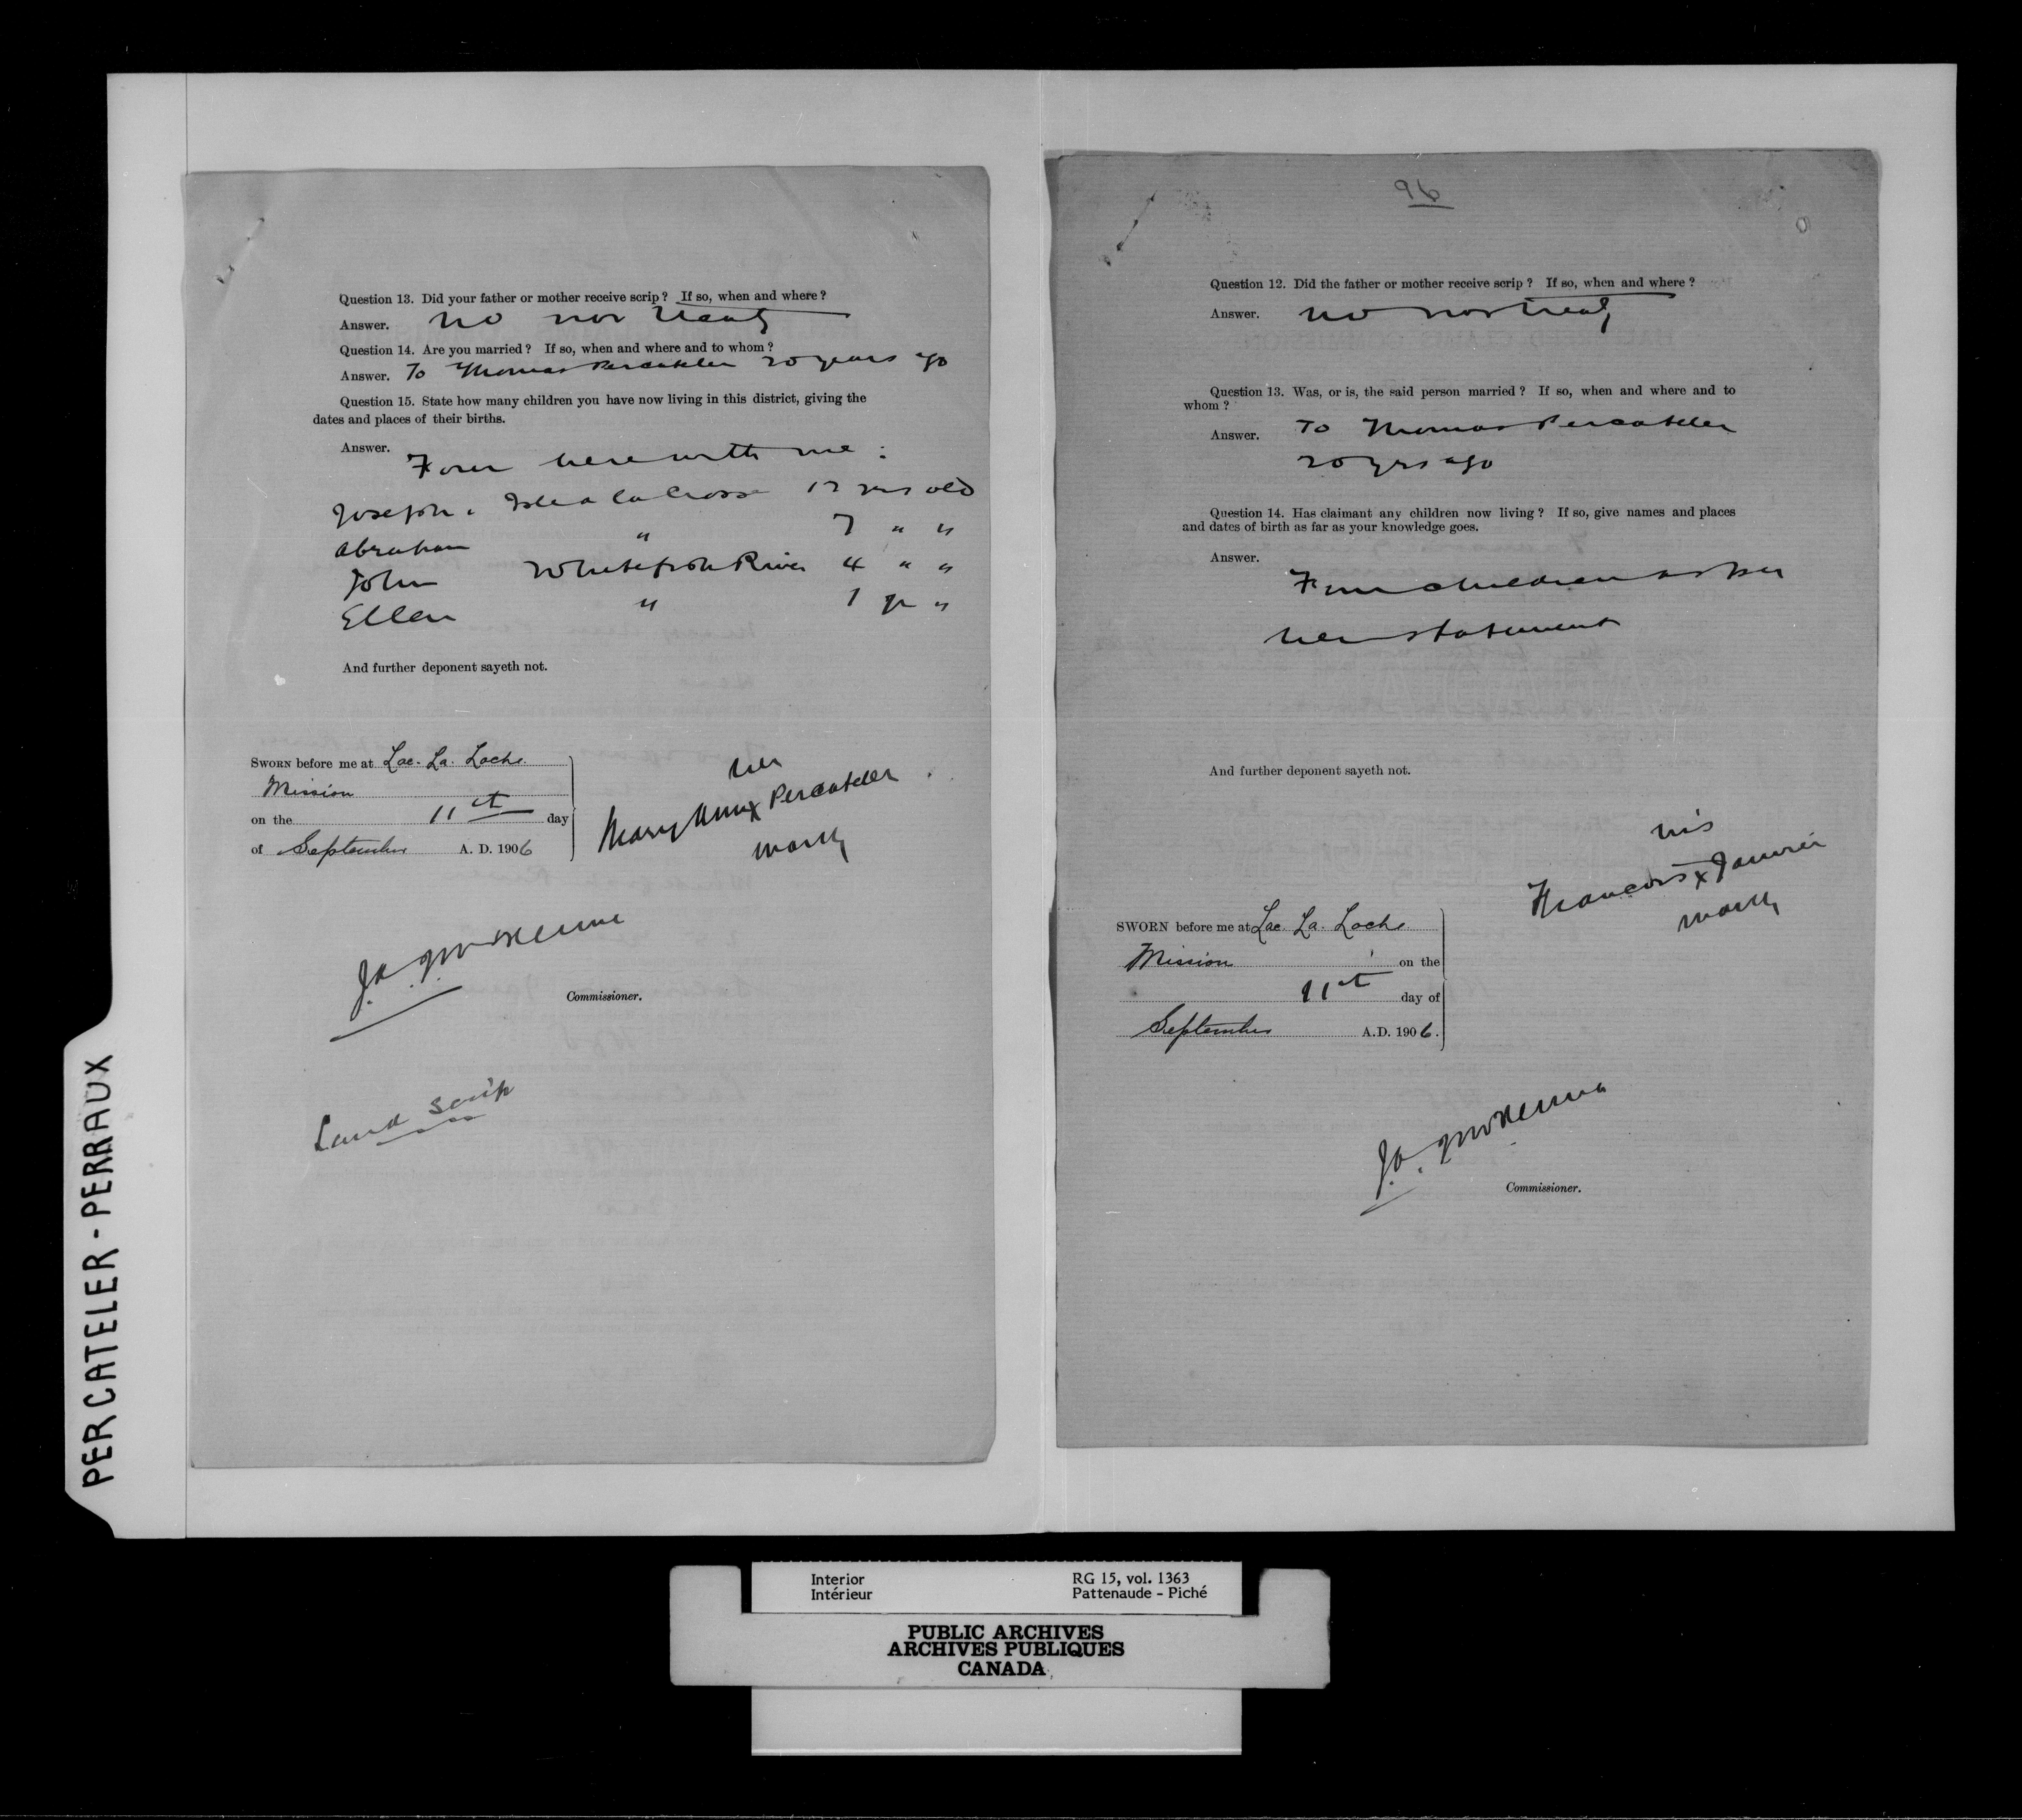 Question 13. Did your father or mother receive scrip? If so, when and where?
Answer. No nor treaty
Question 14. Are you married? If so, when and where and to whom?
Answer. To Thomas Percateler 20 years ago
Question 15. State how many children you have now living in this district, giving the
dates and places of their births.
Answer. Four here with me :
Joseph. Isle a la Crosse yrs old
Abraham " 7 " "
John Whitefish River 4 " "
Ellen " 1 yr "
And further deponent sayeth not.
SWORN before me at Lac. La. Loche
Mission
on the 11th day
of September A. D. 1906
her
Mary Ann x Percateler
mark
J.A. J. McKenna
Commissioner.
Land scrip
96
Question 12. Did the father or mother receive scrip? If so, when and where?
Answer. No nor treaty
Question 13. Was, or is, the said person married? If so, when and where and to
whom?
Answer. To Thomas Percateler
20 yrs ago
Question 14. Has claimant any children now living? If so, give names and places
and dates of birth as far as your knowledge goes.
Answer.
Four children as per
her statement
And further deponent sayeth not.
his
Francois x Janvier
mark
SWORN before me at Lac. La. Loche
Mission on the
11th day of
September A.D. 1906.
J.A. J. McKenna
Commissioner.
PERCATELER - PERRAUX
Interior RG 15, vol. 1363
Intérieur Pattenaude - Piché
PUBLIC ARCHIVES
ARCHIVES PUBLIQUES
CANADA